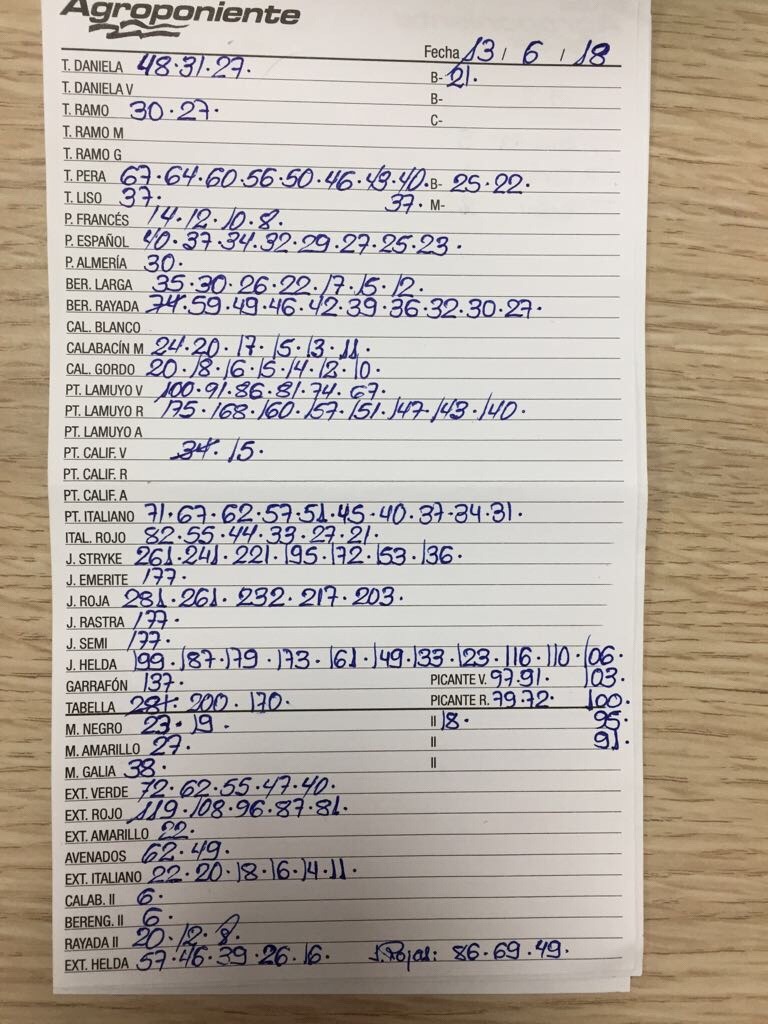 Agroponiente
Fecha 13 / 6 / 18
T. DANIELA 48·31·27· B- 21·
T. DANIELA V B-
T. RAMO 30·27· C-
T. RAMO M
T. RAMO G
T. PERA 67·64·60·56·50·46·43·40· B- 25·22·
T. LISO 37· 37· M-
P. FRANCÉS 14·12·10·8·
P. ESPAÑOL 40·37·34·32·29·27·25·23·
P. ALMERÍA 30·
BER. LARGA 35·30·26·22·17·15·12·
BER. RAYADA 74·59·49·46·42·39·36·32·30·27·
CAL. BLANCO
CALABACÍN M 24·20·17·15·13·11·
CAL. GORDO 20·18·16·15·14·12·10·
PT. LAMUYO V 100·91·86·81·74·67·
PT. LAMUYO R 175·168·160·157·151·147·143·140·
PT. LAMUYO A
PT. CALIF. V 34·15·
PT. CALIF. R
PT. CALIF. A
PT. ITALIANO 71·67·62·57·51·45·40·37·34·31·
ITAL. ROJO 82·55·44·33·27·21·
J. STRYKE 261·241·221·195·172·153·136·
J. EMERITE 177·
J. ROJA 281·261·232·217·203·
J. RASTRA 177·
J. SEMI 177·
J. HELDA 199·187·179·173·161·149·133·123·116·110·106·
GARRAFÓN 137· PICANTE V. 97·91· 103·
TABELLA 200·170· PICANTE R. 79·72· 100·
M. NEGRO 23·19· II 18· 95·
M. AMARILLO 27· II 91·
M. GALIA 38· II
EXT. VERDE 72·62·55·47·40·
EXT. ROJO 119·108·96·87·81·
EXT. AMARILLO 22·
AVENADOS 62·49·
EXT. ITALIANO 22·20·18·16·14·11·
CALAB. II 6·
BERENG. II 6·
RAYADA II 20·12·8·
EXT. HELDA 57·46·39·26·16· J. Rojas: 86·69·49·